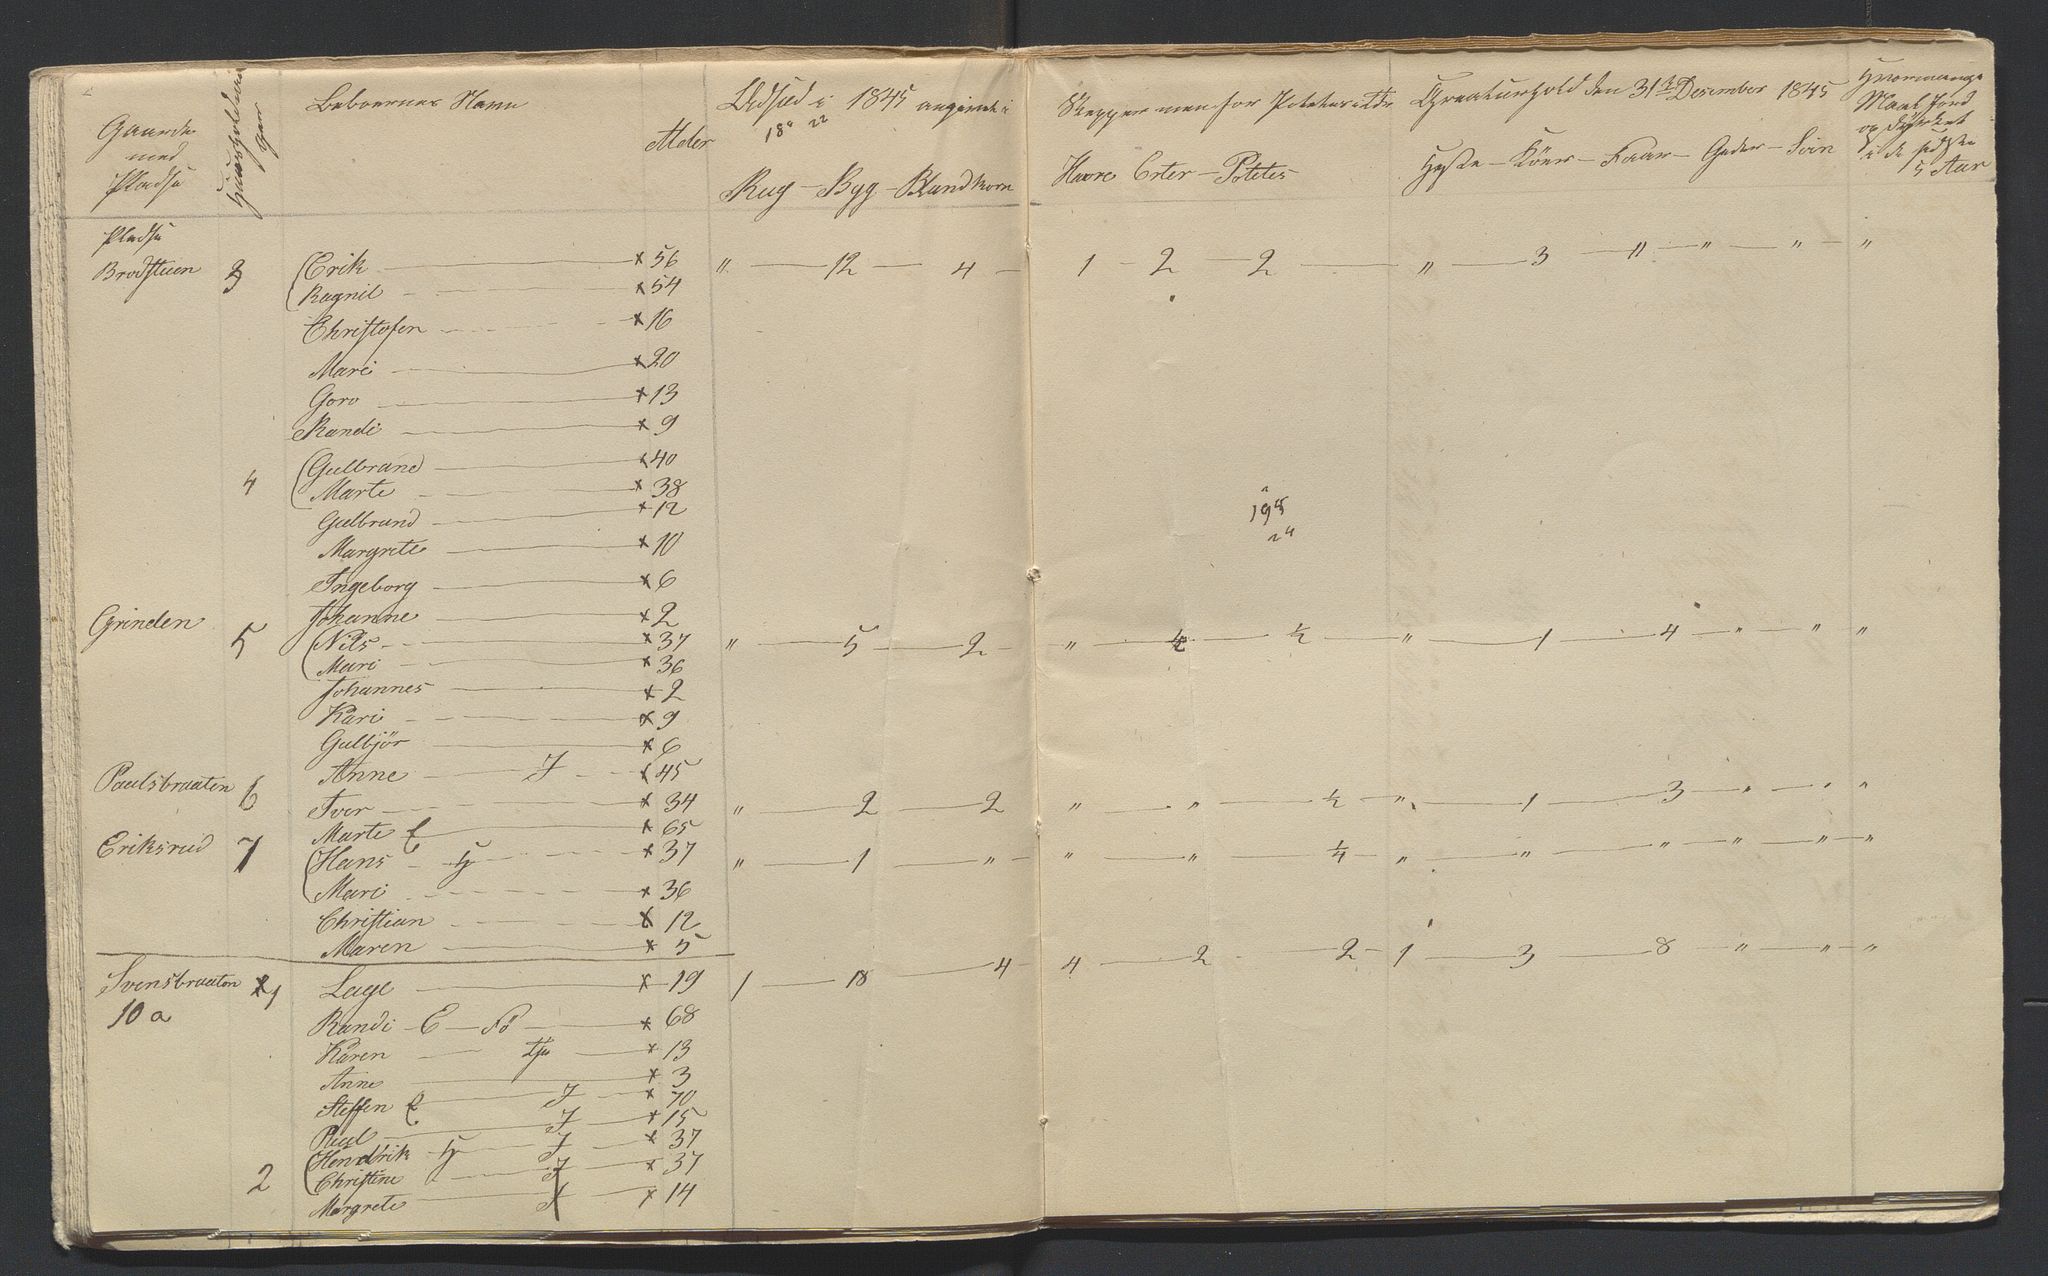 Gaarde med Pladse Huusholdninger Beboernes Navn Alder Udsæd i 1845 angivet i Skepper men for Potetes i Tdr Creaturhold den 31te Desember 1845 Hvormange Maal Jord opdÿrket i de sidste 5 Aar
18" 22
Rug - Byg - Blandkorn Havre Erter - Potetes Heste - Köer - Faar - Geder - Svin
Pladse
Brodstuen 3 Erik x 56 " 12 4 1 2 2 " 3 " " " "
Ragnil x 54
Christofen x 16
Mari x 20
Goro x 13
Randi x 9
4 Gulbrand x 40
Marte x 38
Gulbrand x 12
Margrete x 10
Ingeborg x 6
Johanne x 2
Grinden 5 Nils x 37 " 5 2 " ½ " 1 4 " " "
Mari x 36
Johannes x 2
Kari x 9
Gulbjör x 6
Anne J x 45
Paulsbraaten 6 Iver x 34 " 2 2 " " ½ " 1 3 " " "
Marte E x 65
Eriksrud 7 Hans H x 37 " 1 " " " ¼ " " " " " "
Mari x 36
Christian x 12
Maren x 5
Svensbraaten 1 Lage x 19 1 18 4 4 2 2 1 3 8 " " "
10 a Randi - E - Fö x 68
Karen tje x 13
Anne x 3
Steffen E J x 70
Paul J x 15
Hendrik H J x 37
2 Christine J x 37
Margrete J x 14